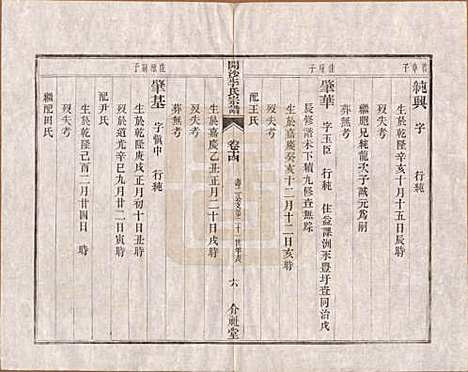 純興
字
行純
生於辛亥十月十五日辰時
歿失考
繼胞兄純龍次子誠元為嗣
肇華
字玉臣
行純
住益課洲永豐圩壹同治戌
長修譜未下續九修查無踪
生於嘉慶癸亥十二月十二日亥時
歿失考
配王氏
生於嘉慶乙丑正月二十日戌時
歿失考
葬無考
卷古
六
介祉堂
肇基
字慎中
行純
生於乾隆庚戌正月初十日丑時
歿於道光辛巳九月廿二日寅時
葬無考
配尹氏
歿失考
生於乾隆己酉二月廿四日
時
繼配田氏